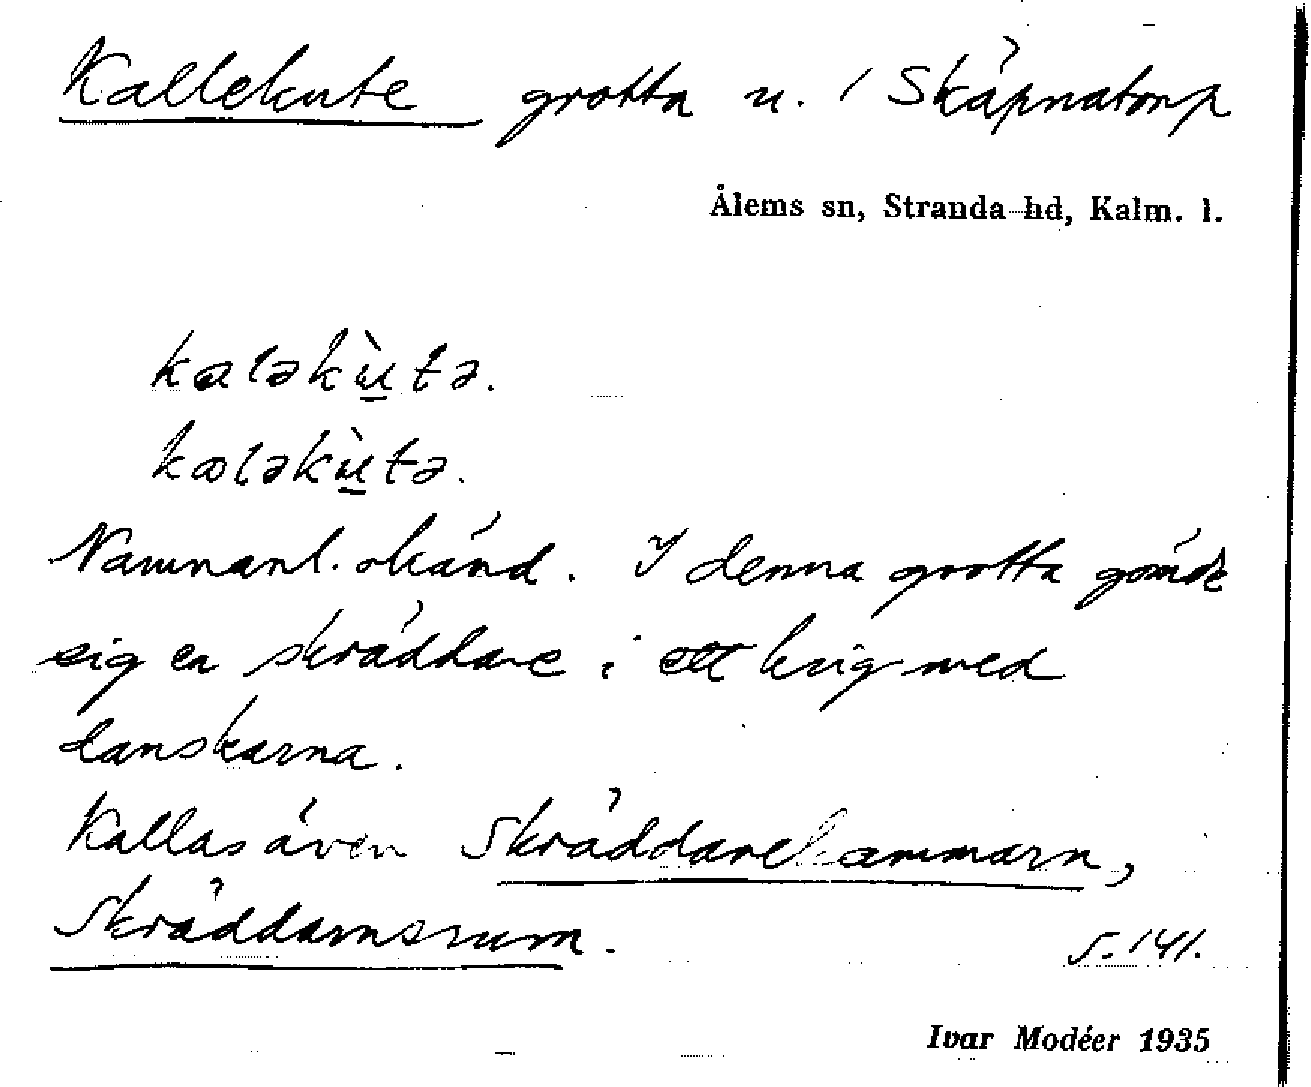 Kallekute grotta u. / Skäpnatorp
Ålems sn, Stranda hd, Kalm. l.
kaləkù̱tə.
kɷləkù̱tə.
Namnanl. okänd. I denna grotta gömde
sig en skräddare i ett krig med
danskarna.
Kallas även Skräddarekammarn,
Skräddarnsrum.
S. 141.
Ivar Modéer 1935